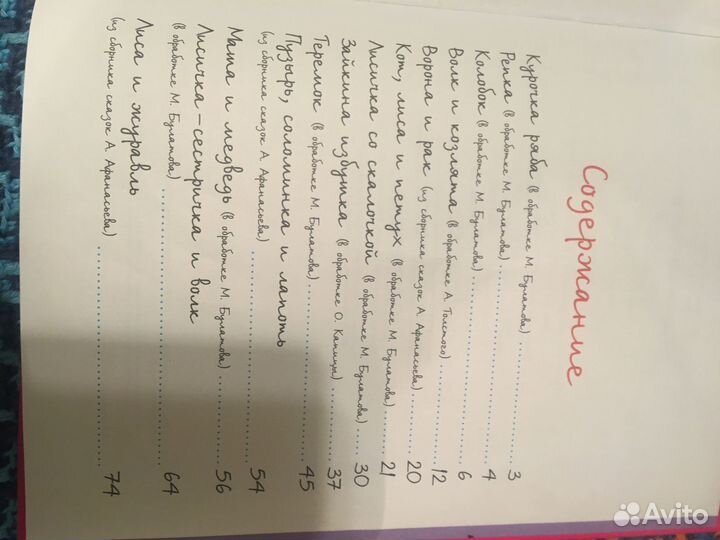 Содержание
Курочка ряба (в обработке М. Булатова) .......... 3
Репка (в обработке М. Булатова) .......... 4
Колобок (в обработке М. Булатова) .......... 6
Волк и козлята (в обработке А. Толстого) .......... 12
Ворона и рак (из сборника сказок А. Афанасьева) .......... 20
Кот, лиса и петух (в обработке М. Булатова) .......... 21
Лисичка со скалочкой (в обработке М. Булатова) .... 30
Зайкина избушка (в обработке О. Капицы) .......... 37
Теремок (в обработке М. Булатова) .......... 45
Пузырь, соломинка и лапоть
(из сборника сказок А. Афанасьева) .......... 54
Маша и медведь (в обработке М. Булатова) .......... 56
Лисичка-сестричка и волк
(в обработке М. Булатова) .......... 64
Лиса и журавль
(из сборника сказок А. Афанасьева) .......... 74
Avito